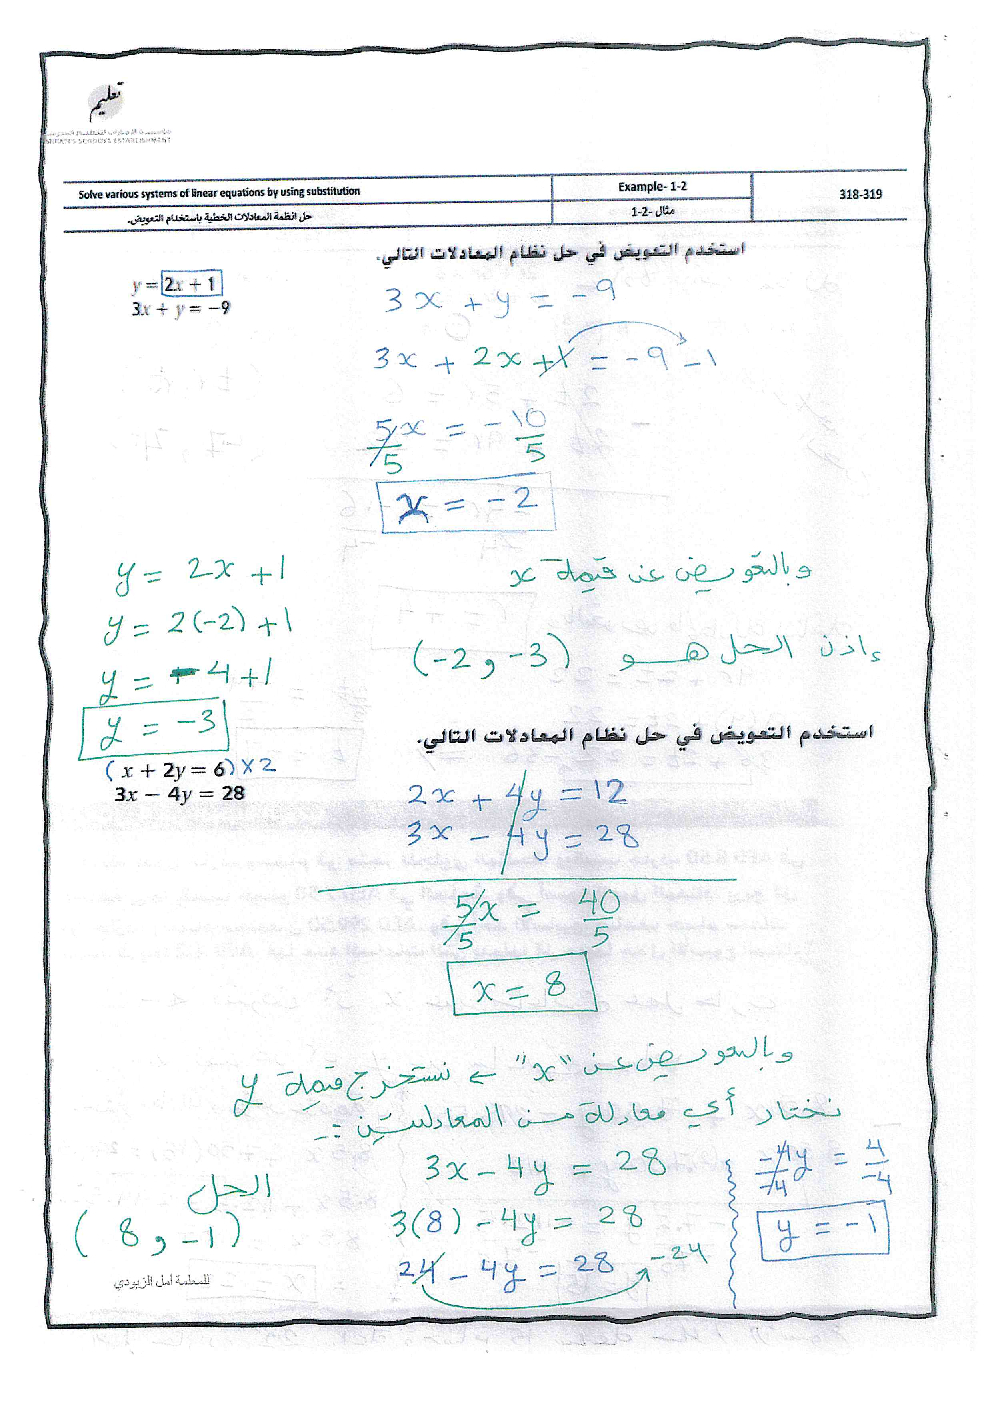 تعليم
مؤسسة الإمارات للتعليم المدرسي
EMIRATES SCHOOLS ESTABLISHMENT
Solve various systems of linear equations by using substitution
Example- 1-2
318-319
حل انظمة المعادلات الخطية باستخدام التعويض.
مثال -2-1
استخدم التعويض في حل نظام المعادلات التالي.
y = 2x + 1
3x + y = -9
3x + y = -9
3x + 2x + 1 = -9 -1
5x/5 = -10/5
x = -2
وبالتعويض عن قيمة x
y = 2x + 1
y = 2(-2) + 1
y = -4 + 1
y = -3
إذن الحل هو (-2 و -3)
استخدم التعويض في حل نظام المعادلات التالي.
(x + 2y = 6) × 2
3x − 4y = 28
2x + 4y = 12
3x - 4y = 28
5x/5 = 40/5
x = 8
وبالتعويض عن "x" نستخرج قيمة y
نختار أي معادلة من المعادلتين :-
3x - 4y = 28
3(8) - 4y = 28
24 - 4y = 28 -24
-4y/-4 = 4/-4
y = -1
الحل
(8 و -1)
للمعلمة أمل الزيودي